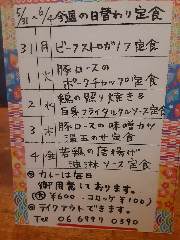 5/31~6/4 今週の日替わり定食
31 月 ビーフストロガノフ定食
1 火 豚ロースの
ポークチャップ定食
2 水 鶏の照り焼き&
白身フライタルタルソース定食
3 木 豚ロースの味噌カツ
湯玉の十定食
4 金 若鶏の唐揚げ
油淋ソース定食
◎カレーは毎日
御用意しております。
(並¥600、コロッケ¥100)
◎テイクアウトできます。
Tel 06 6997 0390